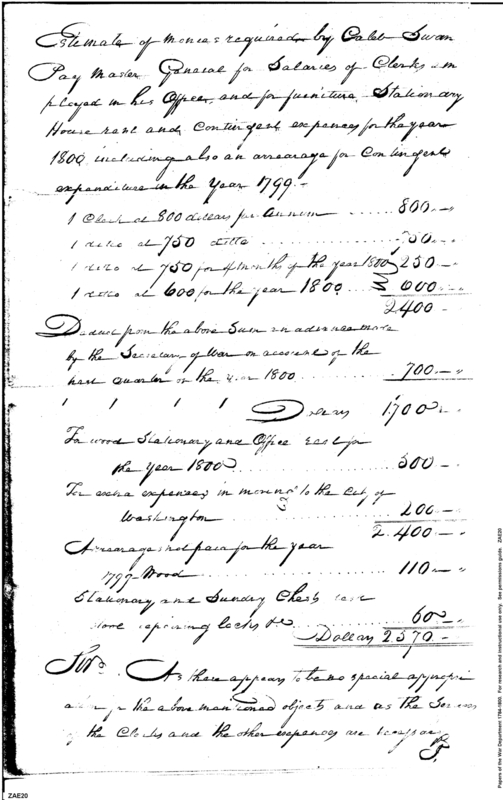 Estimate of Monies required by Caleb Swan
Pay Master General for Salaries of Clerks em
ployed in his Office, and for furniture Stationary
House rent and Contingent expences for the year
1800, including also an arrearage for Contingent
expenditure in the Year 1799.-
1 Clerk at 800 dollars per Annum ...... 800.-"
1 ditto at 750 ditto ......... 750.-"
1 ditto at 750 for 4 months of the year 1800 250 -
1 ditto at 600 for the year 1800 ... 600 -
2.400 -
Deduct from the above Sum an advance made
by the Secretary of War on account of the
quarter of the year 1800 ......... 700.-"
" " " " Dollars 1700 -"
For wood Stationary and Office rent for
the Year 1800 ......... 500 -.
For extra expenses in moving to the City of
Washington ......... 200 -"
2.400 -"
Arrearages not paid for the year
1799 - Wood ......... 110 -"
Stationary and Sundry Chests
repairing locks &c ......... 60 -
Dollars 2570 -
As there appears to be no special appropri
the above mentioned objects and as the Services
of the Clerks and the other expences are
ZAE20
Papers of the War Department 1784-1800. For research and instructional use only. See permissions guide. ZAE20